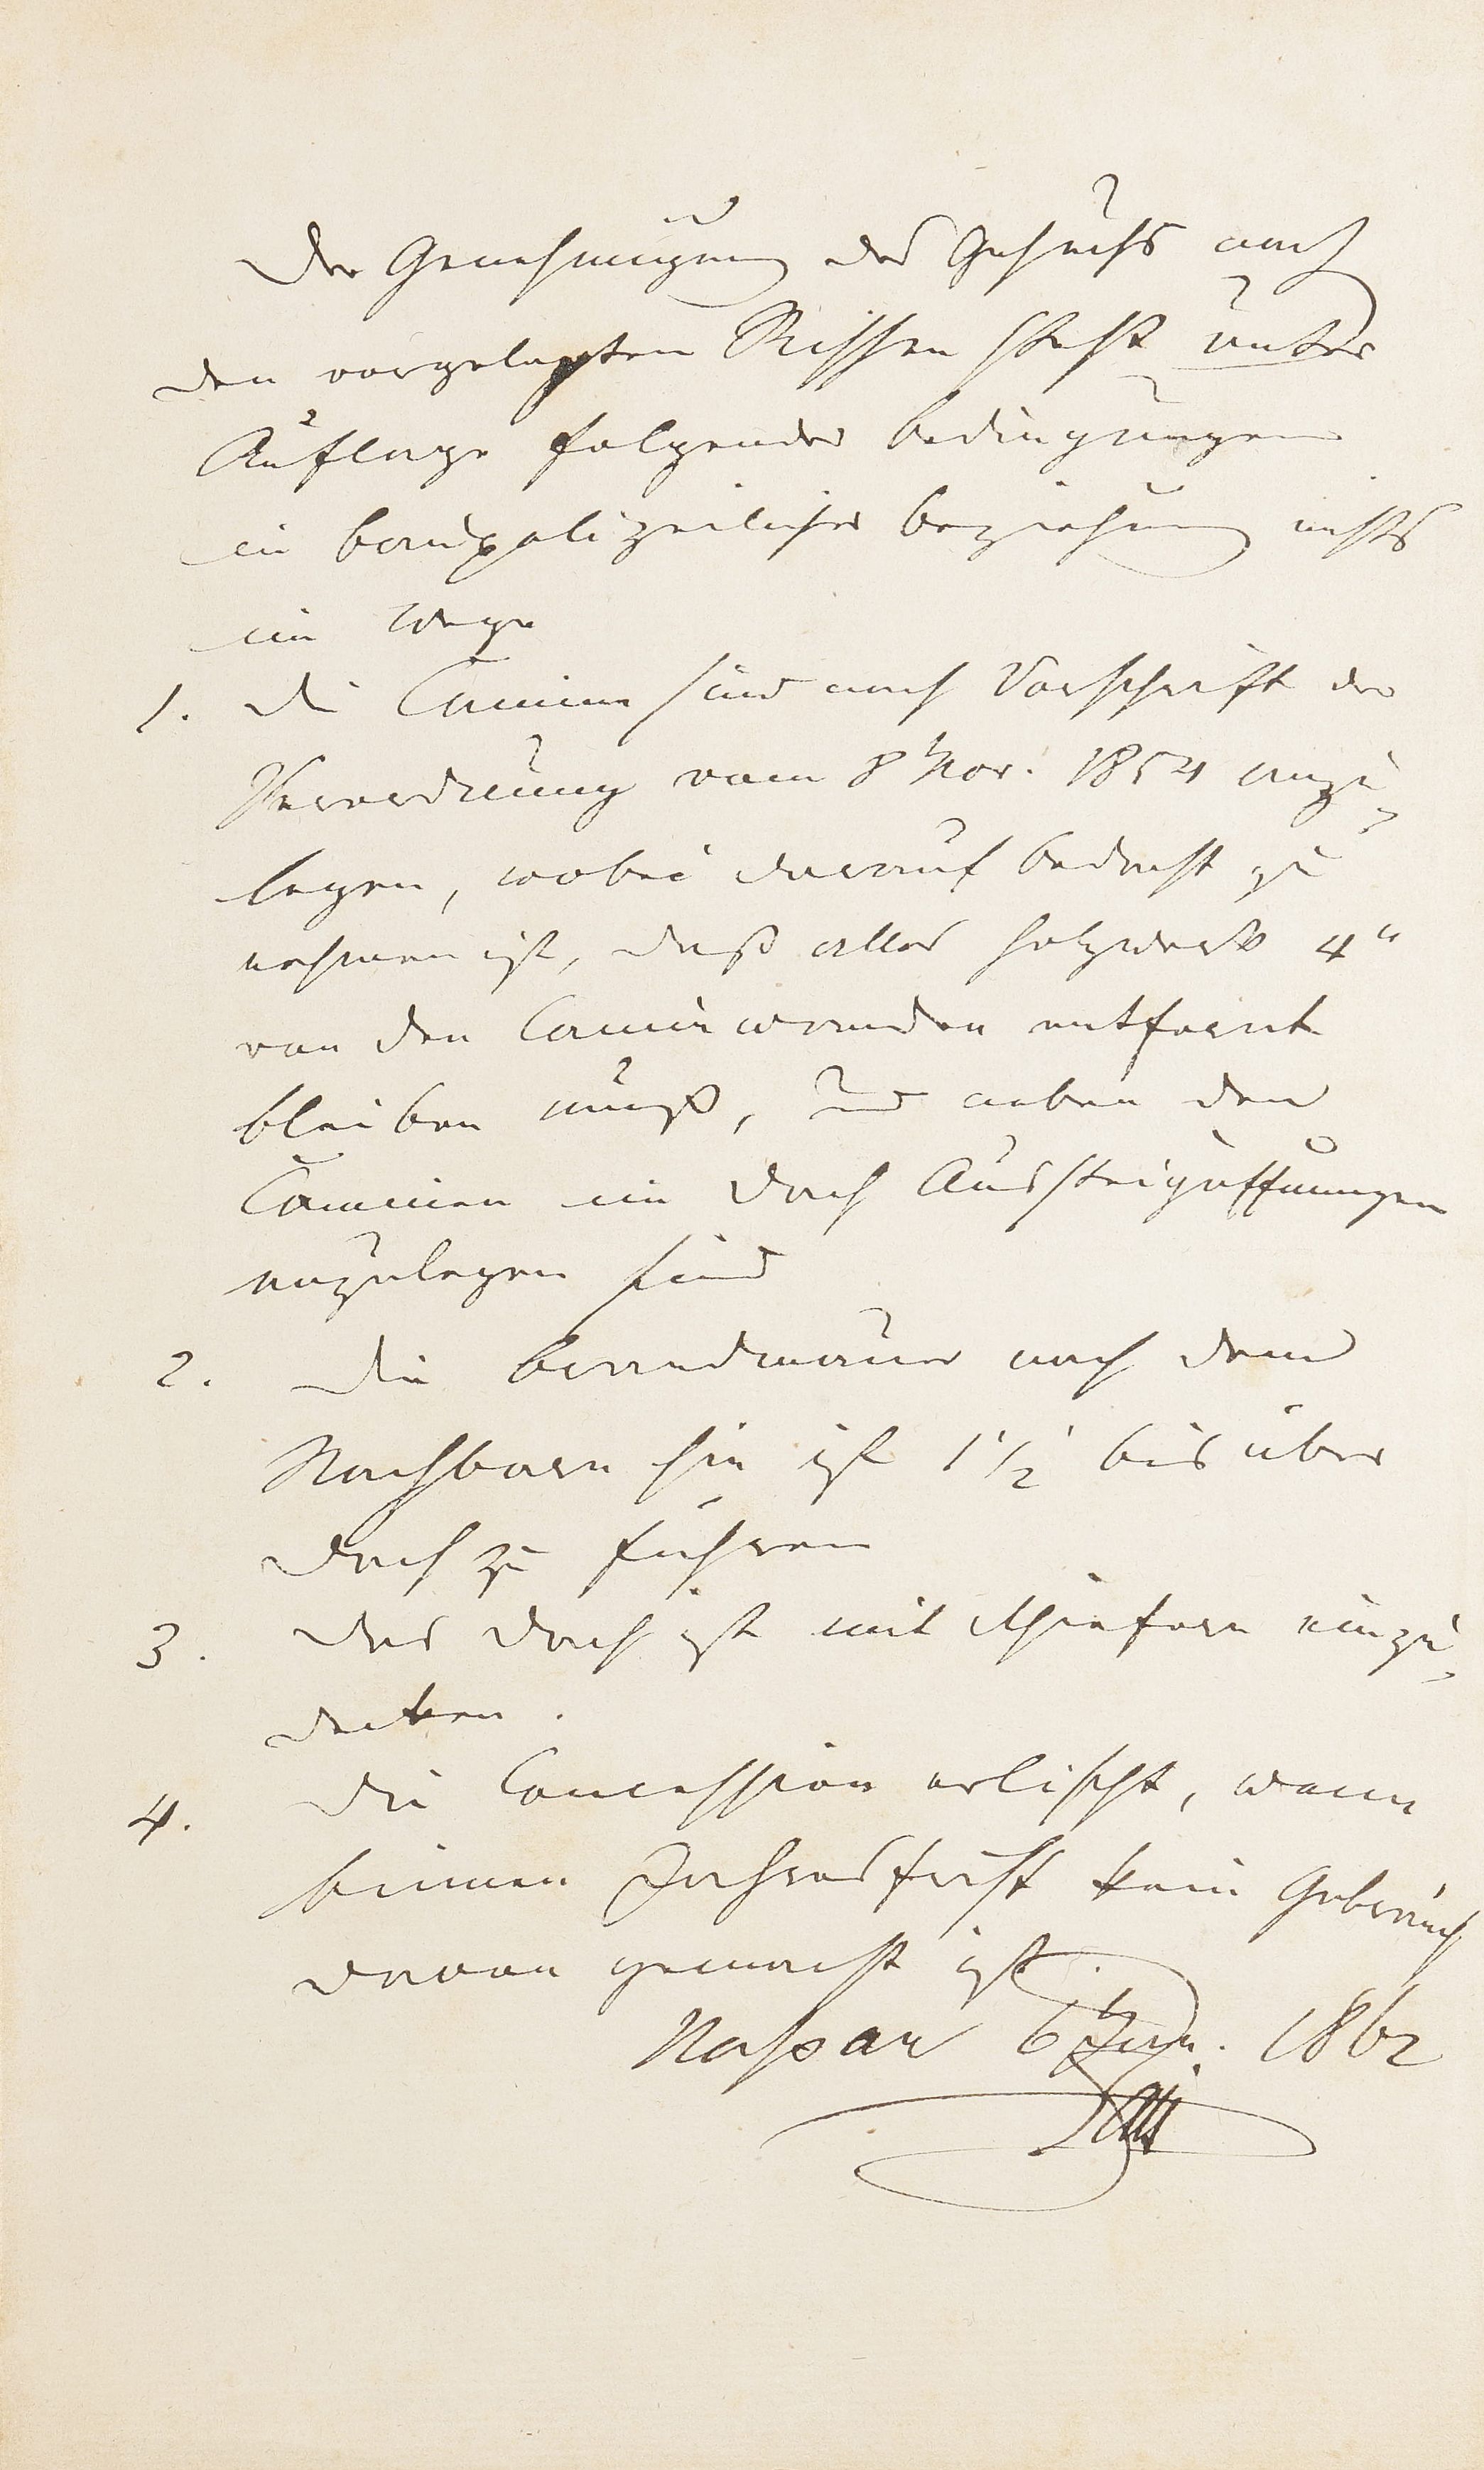 Der Genehmigung des Gesuchs nach
den vorgelegten Rissen steht unter
Auflage folgender Bedingungen
in baupolizeilicher Beziehung nichts
im Wege
1. Die Camine sind nach Vorschrift der
Verordnung vom 8t Nov. 1854 anzu-
legen, wobei darauf bedacht zu
nehmen ist, daß alles Holzwerk 4"
von den Caminwanden entfernt
bleiben muß, und neben den
Caminen im Dach Aussteigöffnungen
anzulegen sind
2. Die Brandmauer nach dem
Nachbarn hin ist 1 1/2' bis über
Dach zu führen
3. Das Dach ist mit Schiefern einzu-
decken.
4. Die Concession erlischt, wenn
binnen Jahresfrist kein Gebrauch
davon gemacht ist.
Nassau 6t Jun. 1862